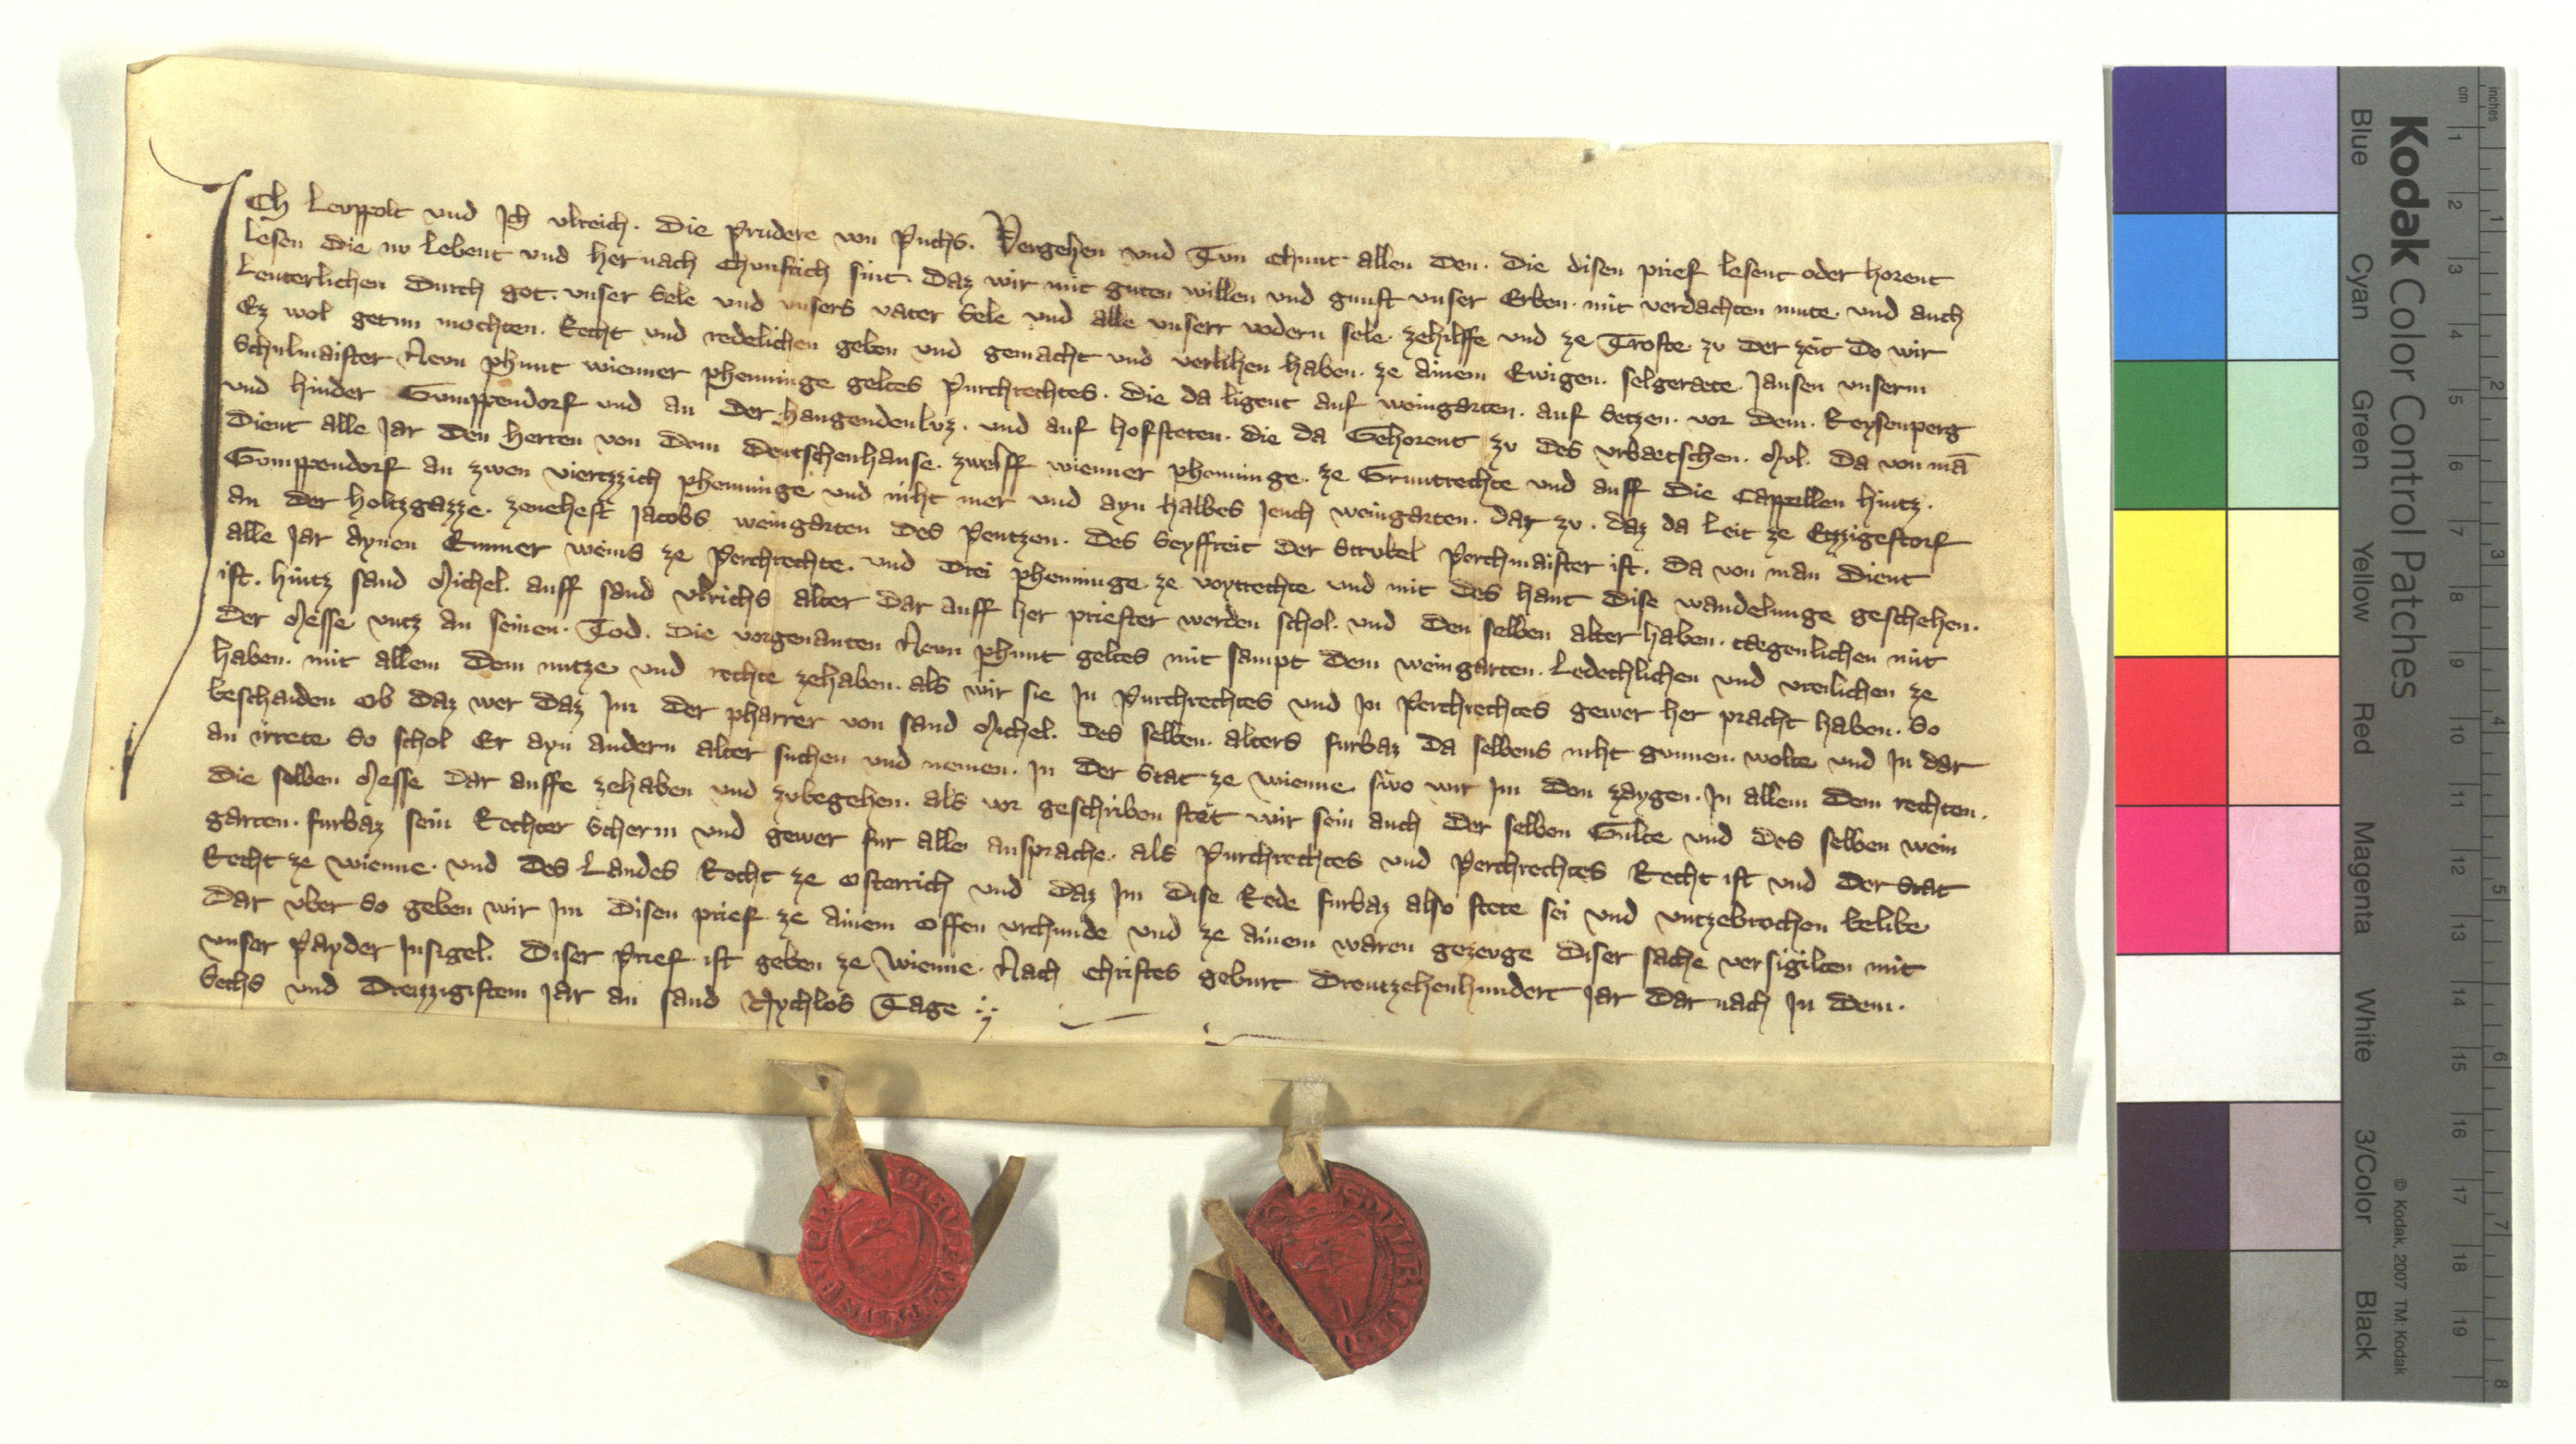 ICh Levppolt vnd Jch vlreich. Die Prudere von Puchs. Vergehen vnd Tvn chunt allen den. Die disen prief lesent oder horent
lesen die nv lebent vnd her nach chvnftich sint. daz wir mit guten willen vnd gunst vnser Erben. mit verdachten mute. vnd auch
leuterlichen durch got. vnser sele vnd vnsers vater sele vnd alle vnserr vodern sele. zehilffe vnd ze Troste. zv der zeit do wir
Ez wol getun mochten. Recht vnd redelichen geben vnd gemacht vnd verlihen haben. ze ainem Ewigen. selgeraete. Jansen vnserm
Schulmaister Nevn phunt wienner phenninge geltes Purchrechtes. die da ligent auf weingarten. auf setzen. vor dem. Reysenperg
vnd hinder Gumppendorf vnd an der hangendenlvz. vnd auf hofsteten. die da Gehorent zv des vrbaetschen. Mvl. da von mā
dient alle Jar den herren von dem deutschenhause. zwelff wienner phenninge. ze Gruntrechte vnd auff die Cappellen hintz.
Gumppendorf an zwen viertzzich phenninge vnd niht mer vnd ayn halbes Jeuch weingarten. dar zv. daz da leit ze Etzzigestorf
an der holtzgazze. zenehest Jacobs weingarten des Pentzen. des Seyffreit der Strvbel Perchmaister ist. da von man dient
alle Jar aynen Emmer weins ze Perchrechte. vnd drei phenninge ze voytrechte vnd mit des hant dise wandelunge geschehen.
ist. hintz sand Michel. auff sand vlrichs alter dar auff her priester werden schol. vnd den selben alter haben. taegenlichen mit
der Messe vntz an seinen. Tod. die vorgenanten Nevn phunt geltes mit sampt dem weingarten. ledechlichen vnd vreilichen ze
haben. mit allem dem nutze vnd rechte zehaben. als wir sie Jn Purchrechtes vnd Jn Perchrechtes gewer her pracht haben. So
beschaiden ob daz wer daz Jm der pharrer von sand Michel. des selben. alters furbaz da selbens niht gunnen. wolte vnd Jn dar
an irrete so schol Er ayn andern alter suchen vnd nemen. Jn der Stat ze wienne swo wir Jm den zaygen. Jn allem dem rechten.
die selben Messe dar auffe zehaben vnd zvbegehen. als vor geschriben stet wir sein auch der selben Gulte vnd des selben wein
garten. furbaz sein Rechter Scherm vnd gewer fur alle ansprache. als Purchrechtes vnd Perchrechtes Recht ist vnd der Stat
Recht ze wienne. vnd des Landes Recht ze Osterrich vnd daz Jm dise Rede furbaz also stete sei vnd vntzebrochen belibe
dar vber So geben wir Jm disen prief ze ainem offen vrchunde vnd ze ainem waren gezevge diser sache versigilten mit
vnser Payder Jnsigel. diser Prief ist geben ze Wienne. Nach christes geburt dreutzehenhundert Jar dar nach Jn dem.
sechs vnd dreizzigistem Jar an sand Nychlos Tage
Kodak Color Control Patches
© Kodak, 2007 TM: Kodak
Blue Cyan Green Yellow Red Magenta White 3/Color Black
inches 1 2 3 4 5 6 7 8
cm 1 2 3 4 5 6 7 8 9 10 11 12 13 14 15 16 17 18 19